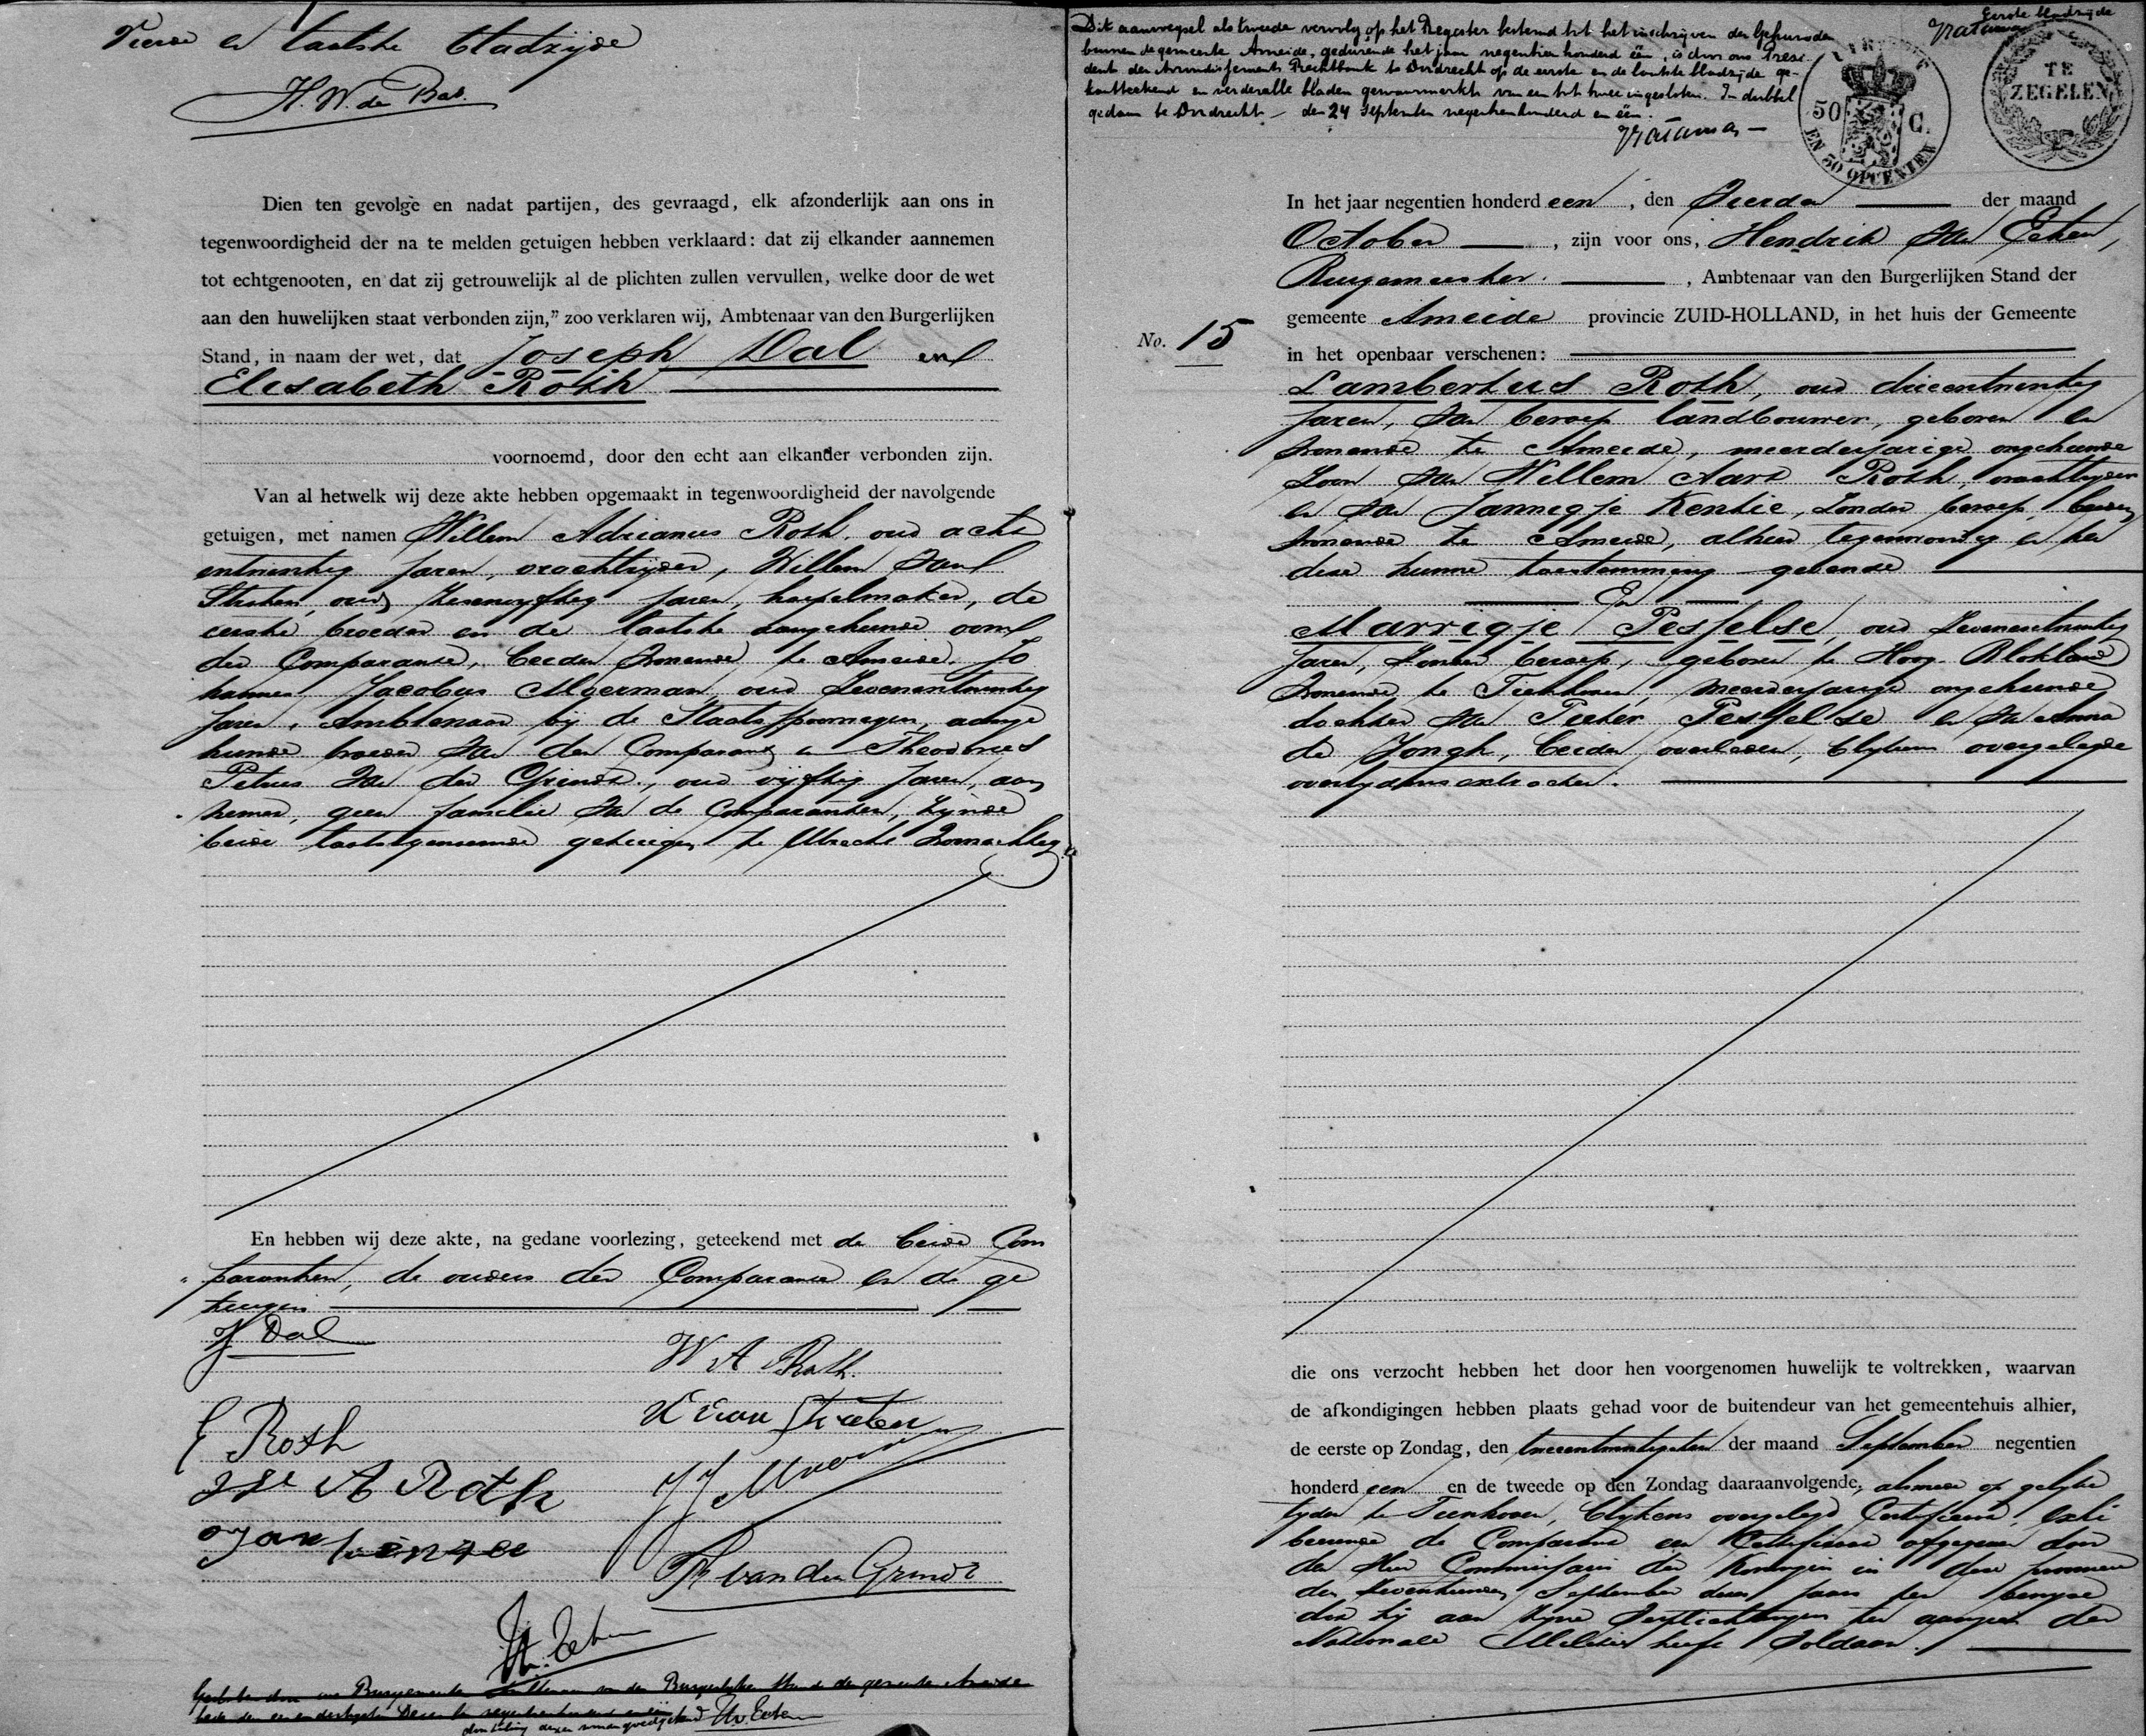 Vierde en laatste bladzijde
H. W. de Bas.
Dien ten gevolge en nadat partijen, des gevraagd, elk afzonderlijk aan ons in
tegenwoordigheid der na te melden getuigen hebben verklaard: dat zij elkander aannemen
tot echtgenooten, en dat zij getrouwelijk al de plichten zullen vervullen, welke door de wet
aan den huwelijken staat verbonden zijn,” zoo verklaren wij, Ambtenaar van den Burgerlijken
Stand, in naam der wet, dat Joseph Dal en
Elisabeth Roth
voornoemd, door den echt aan elkander verbonden zijn.
Van al hetwelk wij deze akte hebben opgemaakt in tegenwoordigheid der navolgende
getuigen, met namen Willem Adrianus Roth, oud acht
entwintig jaren, vrachtrijder, Willem van
Straten, oud zesenvyftig jaren, hoepelmaker, de
eerste broeder en de laatste aangehuwde oom
der Comparante, beiden wonende te Ameide, Jo
hannes Jacobus Moerman, oud zevenentwintig
jaren, Ambtenaar bij de Staatsspoorwegen, aange
huwde broeder van den Comparant en Theodorus
Petrus van der Grindt, oud vijftig jaren, aan
nemer, geen familie van de Comparanten, zynde
beide laatstgenoemde getuigen te Utrecht woonachtig
En hebben wij deze akte, na gedane voorlezing, geteekend met de beide Com
paranten, de ouders der Comparante en de ge
tuigen
J Dal
W A Roth.
E Roth
W van Straten
W A Roth
J J Moerman
Jan kentie
Th van der Grindt
H. v. Eeten
Dit aanwegsel als tweede vervolg op het Register bestemd tot het inschrijven der Gehuwden
binnen de gemeente Ameide, gedurende het jaar negentien honderd één, is door ons Presi-
dent der Arrondissements Rechtbank te Dordrecht op de eerste en de laatste bladzijde ge-
kantteekend en verder alle bladen gewaarmerkt van een tot twee ingesloten. In dubbel
gedaan te Dordrecht den 24 September negentienhonderd en één.
Eerste bladzijde
50 C.
EN 50 OPCENTEN
TE
ZEGELEN
In het jaar negentien honderd een, den Vierden der maand
October, zijn voor ons, Hendrik van Eeten,
Burgemeester, Ambtenaar van den Burgerlijken Stand der
gemeente Ameide provincie ZUID-HOLLAND, in het huis der Gemeente
No. 15
in het openbaar verschenen:
Lambertus Roth, oud drieentwintig
jaren, van beroep landbouwer, geboren en
wonende te Ameide, meerderjarige ongehuwde
zoon van Willem Aart Roth, vrachtryder
en van Jannigje Kentie, zonder beroep, beiden
wonende te Ameide, alhier tegenwoordig en tot
deze hunne toestemming gevende
En
Marrigje Pesselse, oud zevenentwintig
jaren, zonder beroep, geboren te Hoog Blokland
wonende te Tienhoven, meerderjarige ongehuwde
dochter van Pieter Pesselse en van Anna
de Jongh, beiden overleden, blykens overgelegde
overlydensextracten.
die ons verzocht hebben het door hen voorgenomen huwelijk te voltrekken, waarvan
de afkondigingen hebben plaats gehad voor de buitendeur van het gemeentehuis alhier,
de eerste op Zondag, den tweeentwintigsten der maand September negentien
honderd een en de tweede op den Zondag daaraanvolgende, alsmede op gelyke
tyden te Tienhoven, blykens overgelegd Certificaat, exhi
beerende de Comparant een Certificaat afgegeven door
den Heer Commissaris der Koningin in deze provincie
den zeventienden September dezes jaars ten bewyze
dat hij aan zyne verplichtingen ten aanzien der
Nationale Militie heeft voldaan.